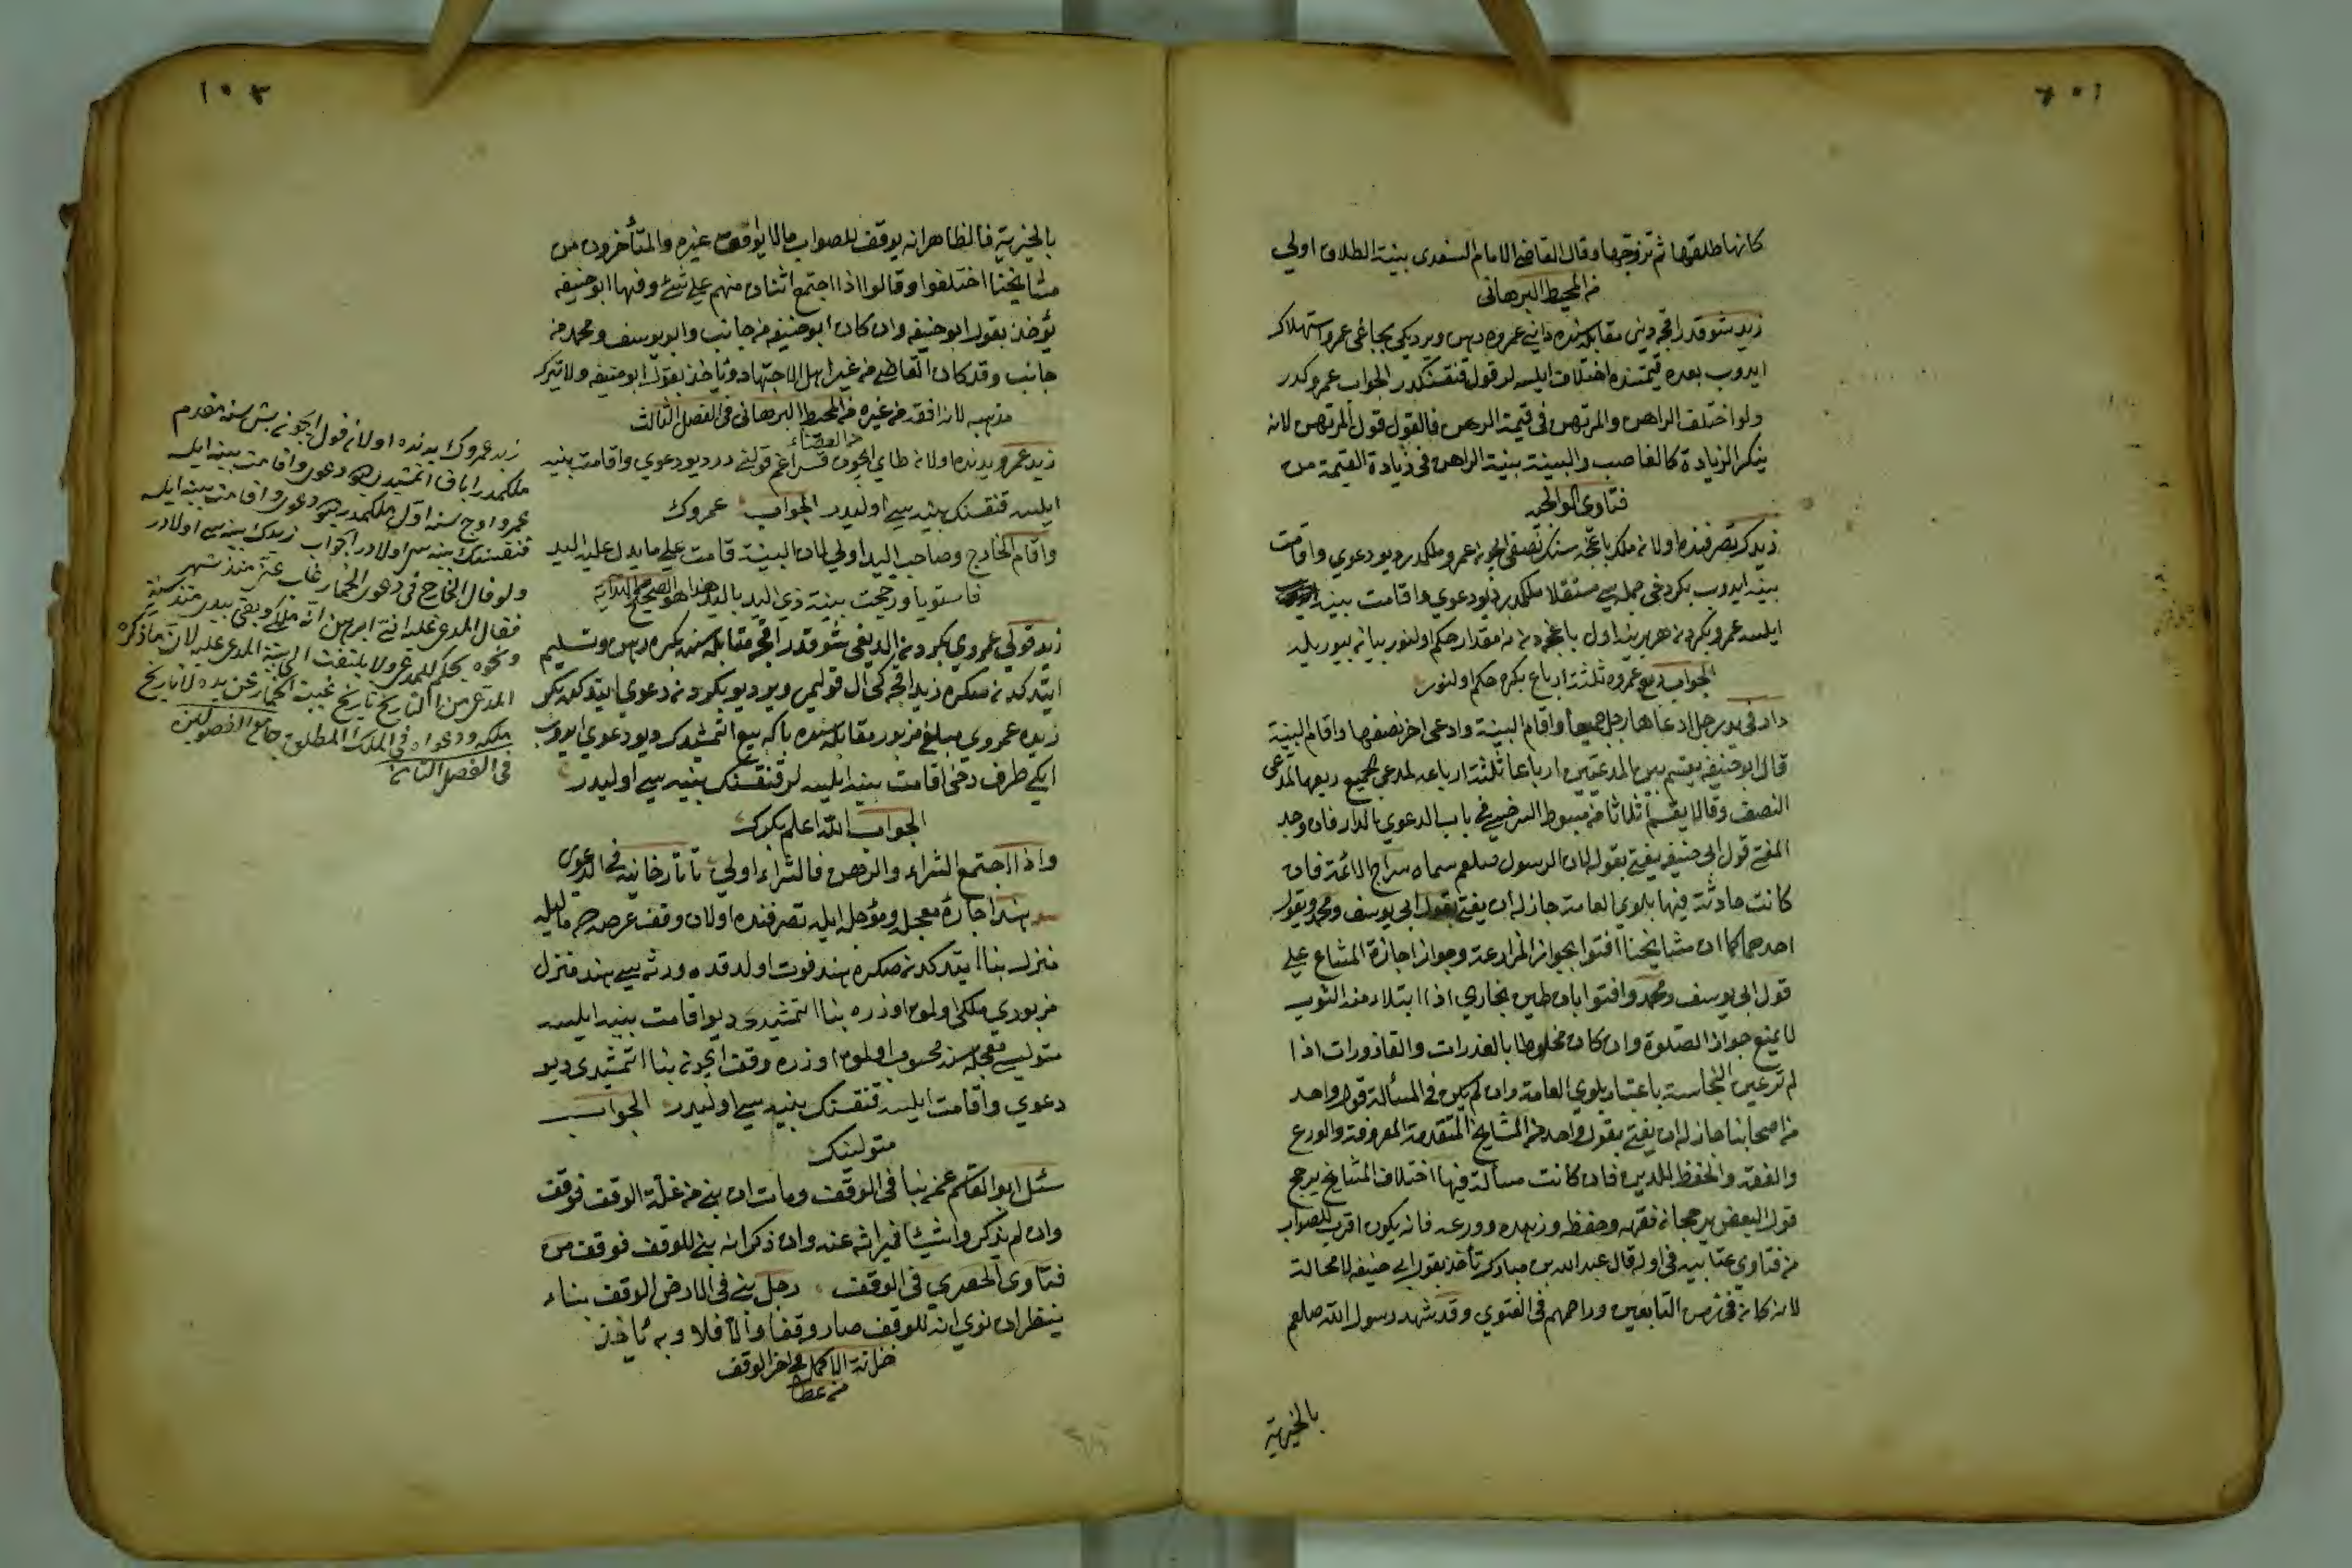 ١٠٢
كانها طلقها ثم تزوجها وقال القاضي الامام السغدى بينة الطلاق اولي
من المحيط البرهاني
زيد شو قدر اقچه ديني مقابله سنده عمروه رهن ويرديكى عمرو استهلاك
ايدوب بعده قيمتنده اختلاف ايلسه لر قول قنقسنكدر الجواب عمروكدر
ولو اختلف الراهن والمرتهن فى قيمة الرهن فالقول قول المرتهن لانه
ينكر الزيادة كالغاصب والبينة بينة الراهن فى زيادة القيمة من
فتاوى الوالجيه
زيدك تصرفنده اولان ملك باغچه سنك نصفى ايچون عمرو ملكمدر ديو دعوي واقامت
بينه ايدوب بكر دخى جمله سي مستقلا ملكمدر ديو دعوي واقامت بينه
ايلسه عمرو وبكردن هر برينه اول باغچه دن نه مقدار حكم اولنور بيانه بيوريله
الجواب ربع عمروه ثلثة ارباع بكره حكم اولنور
دار فى يد رجل ادعاها رجل جميعا واقام البينة وادعى اخر نصفها واقام البينة
قال ابو حنيفه يقسم بين المدعيين ارباعا ثلثة ارباعه لمدعى الجميع ربعها لمدعى
النصف وقالا يقسم اثلاثا من مبسوط السرخسي فى باب الدعوي بالدار فان وجد
المفتى قول ابى حنيفه يفتى بقوله لان الرسول صلعم سماه سراج الائمة فان
كانت حادثة فيها بلوي العامة جاز له ان يفتى بقول ابى يوسف ومحمد وبقول
احدهما كما ان مشايخنا افتوا بجواز المزارعة وجواز اجازة المشاع على
قول ابى يوسف ومحمد وافتوا بان طين بخاري اذا ابتلا منه الثوب
لا يمنع جواز الصلوة وان كان مخلوطا بالعذرات والقاذورات اذا
لم تر عين النجاسة باعتبار بلوي العامة وان لم يكن فى المسألة قول واحد
من اصحابنا جاز له ان يفتى بقول واحد من المشايخ المتقدمة المعروفة والورع
والفقه والحفظ للدين فان كانت مسألة فيها اختلاف المشايخ يرجح
قول البعض برجحان فقهه وحفظه وزهده وورعه فانه يكون اقرب للصواب
من فتاوي عتابيه فى اوله قال عبد الله بن مبارك تأخذ بقول ابى حنيفه لا محالة
لانه كان فى زمن التابعين وزاحمهم فى الفتوي وقد شهد رسول الله صلعم
بالخيرية
١٠٣
بالخيرية فالظاهر انه يوقف للصواب مالا يوقف غيره والمتأخرون من
مشايخنا اختلفوا وقالوا اذا اجتمع اثنان منهم على شئ وفيها ابو حنيفه
يؤخذ بقول ابو حنيفه وان كان ابو حنيفه من جانب وابو يوسف ومحمد من
جانب وقد كان القاضى من غير اهل الاجتهاد وتأخذ بقول ابو حنيفه ولا تترك
مذهبه لانه افقه من غيره من المحيط البرهانى فى الفصل الثالث
من القضاء
زيد عمرو يدنده اولان طاي ايچون قولنى در ديو دعوي واقامت بينه
ايلسه قنقسنك بينه سى اوليدر الجواب عمروك
واقام الخارج وصاحب اليد اولي لان البينة قامت على ما يدل عليه اليد
فاستويا ورجحت بينة ذي اليد باليد هذا هو الصحيح الهدايه
زيد قولى عمروي بكردن الديغى شو قدر اقچه مقابله سنده بكره رهن وتسليم
ايتدكدنصكره زيد اقچه كى ال قوليمى وير ديو بكردن دعوي ايتدكده بكر
زيده عمروي مبلغ مزبور مقابله سنده باكه بيع اتمشدك ديو دعوي ايدوب
ايكى طرف دخى اقامت بينه ايلسه لر قنقسنك بينه سى اوليدر
الجواب الله اعلم بكرك
واذا اجتمع الشراء والرهن فالشراء اولي تاتارخانيه فى الدعوى
هند اجارهٔ معجله ومؤجله ايله تصرفنده اولان وقف عرصه يه ماليله
منزل بنا ايتدكدنصكره هند فوت اولدقده ورثه سى هند منزل
مزبوري ملكى اولمق اوزره بنا اتمشيدى ديو اقامت بينه ايلسه
متولى معجله سنه محسوب اولمق اوزره وقف ايچون بنا اتمشيدى ديو
دعوي واقامت ايلسه قنقسنك بينه سى اوليدر الجواب
متولينك
سئل ابو القاسم عمن بنا فى الوقف ومات ان بنى من غلة الوقف فوقف
وان لم يذكر واشيئا فميراثه عنه وان ذكر انه بنى للوقف فوقف من
فتاوى الحصري فى الوقف رجل بنى فى الارض الوقف بناء
ينظر ان نوي انه للوقف صار وقفا والا فلا وبه تأخذ
خزانة الاكمل فى اخر الوقف
زيد عمروك يدنده اولان قول ايچون بش سنه مقدم
ملكمدن اباق اتمشيدى ديو دعوى واقامت بينه ايلسه
عمرو اوچ سنه اول ملكمدر ديو دعوى واقامت بينه ايلسه
قنقسنك بينه سى اولادر الجواب زيدك بينه سى اولادر
ولو قال الخارج فى دعوى الحمار غاب عنى منذ شهر
فقال المدعى عليه انى ابرهن انه ملكى وبقى بيدى منذ سنة
ونحوه يحكم للمدعى ولا يلتفت الى بينة المدعى عليه لان ما ذكره
المدعى من التاريخ تاريخ غيبة الحمار عن يده لا تاريخ
ملكه ودعواه فى الملك المطلق جامع الفصولين
فى الفصل الثامن